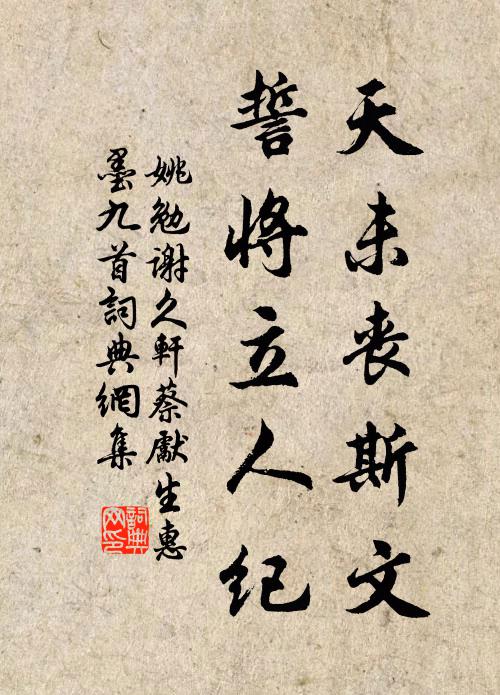 天未丧斯文
誓将立人纪
姚勉谢久軒蔡獻生惠
墨九首詞典網集
詞典网印